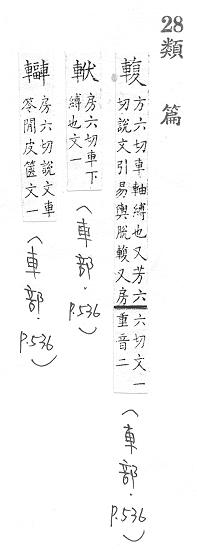 28類篇
輹
方六切車軸縛也又芳六
切說文引易輿脫輹又房
六切文一
重音二
(車部.P.536)
房六切車下
縛也文一
(車部.P.536)
房六切說文車
笭閒皮篋文一
(車部.P.536)